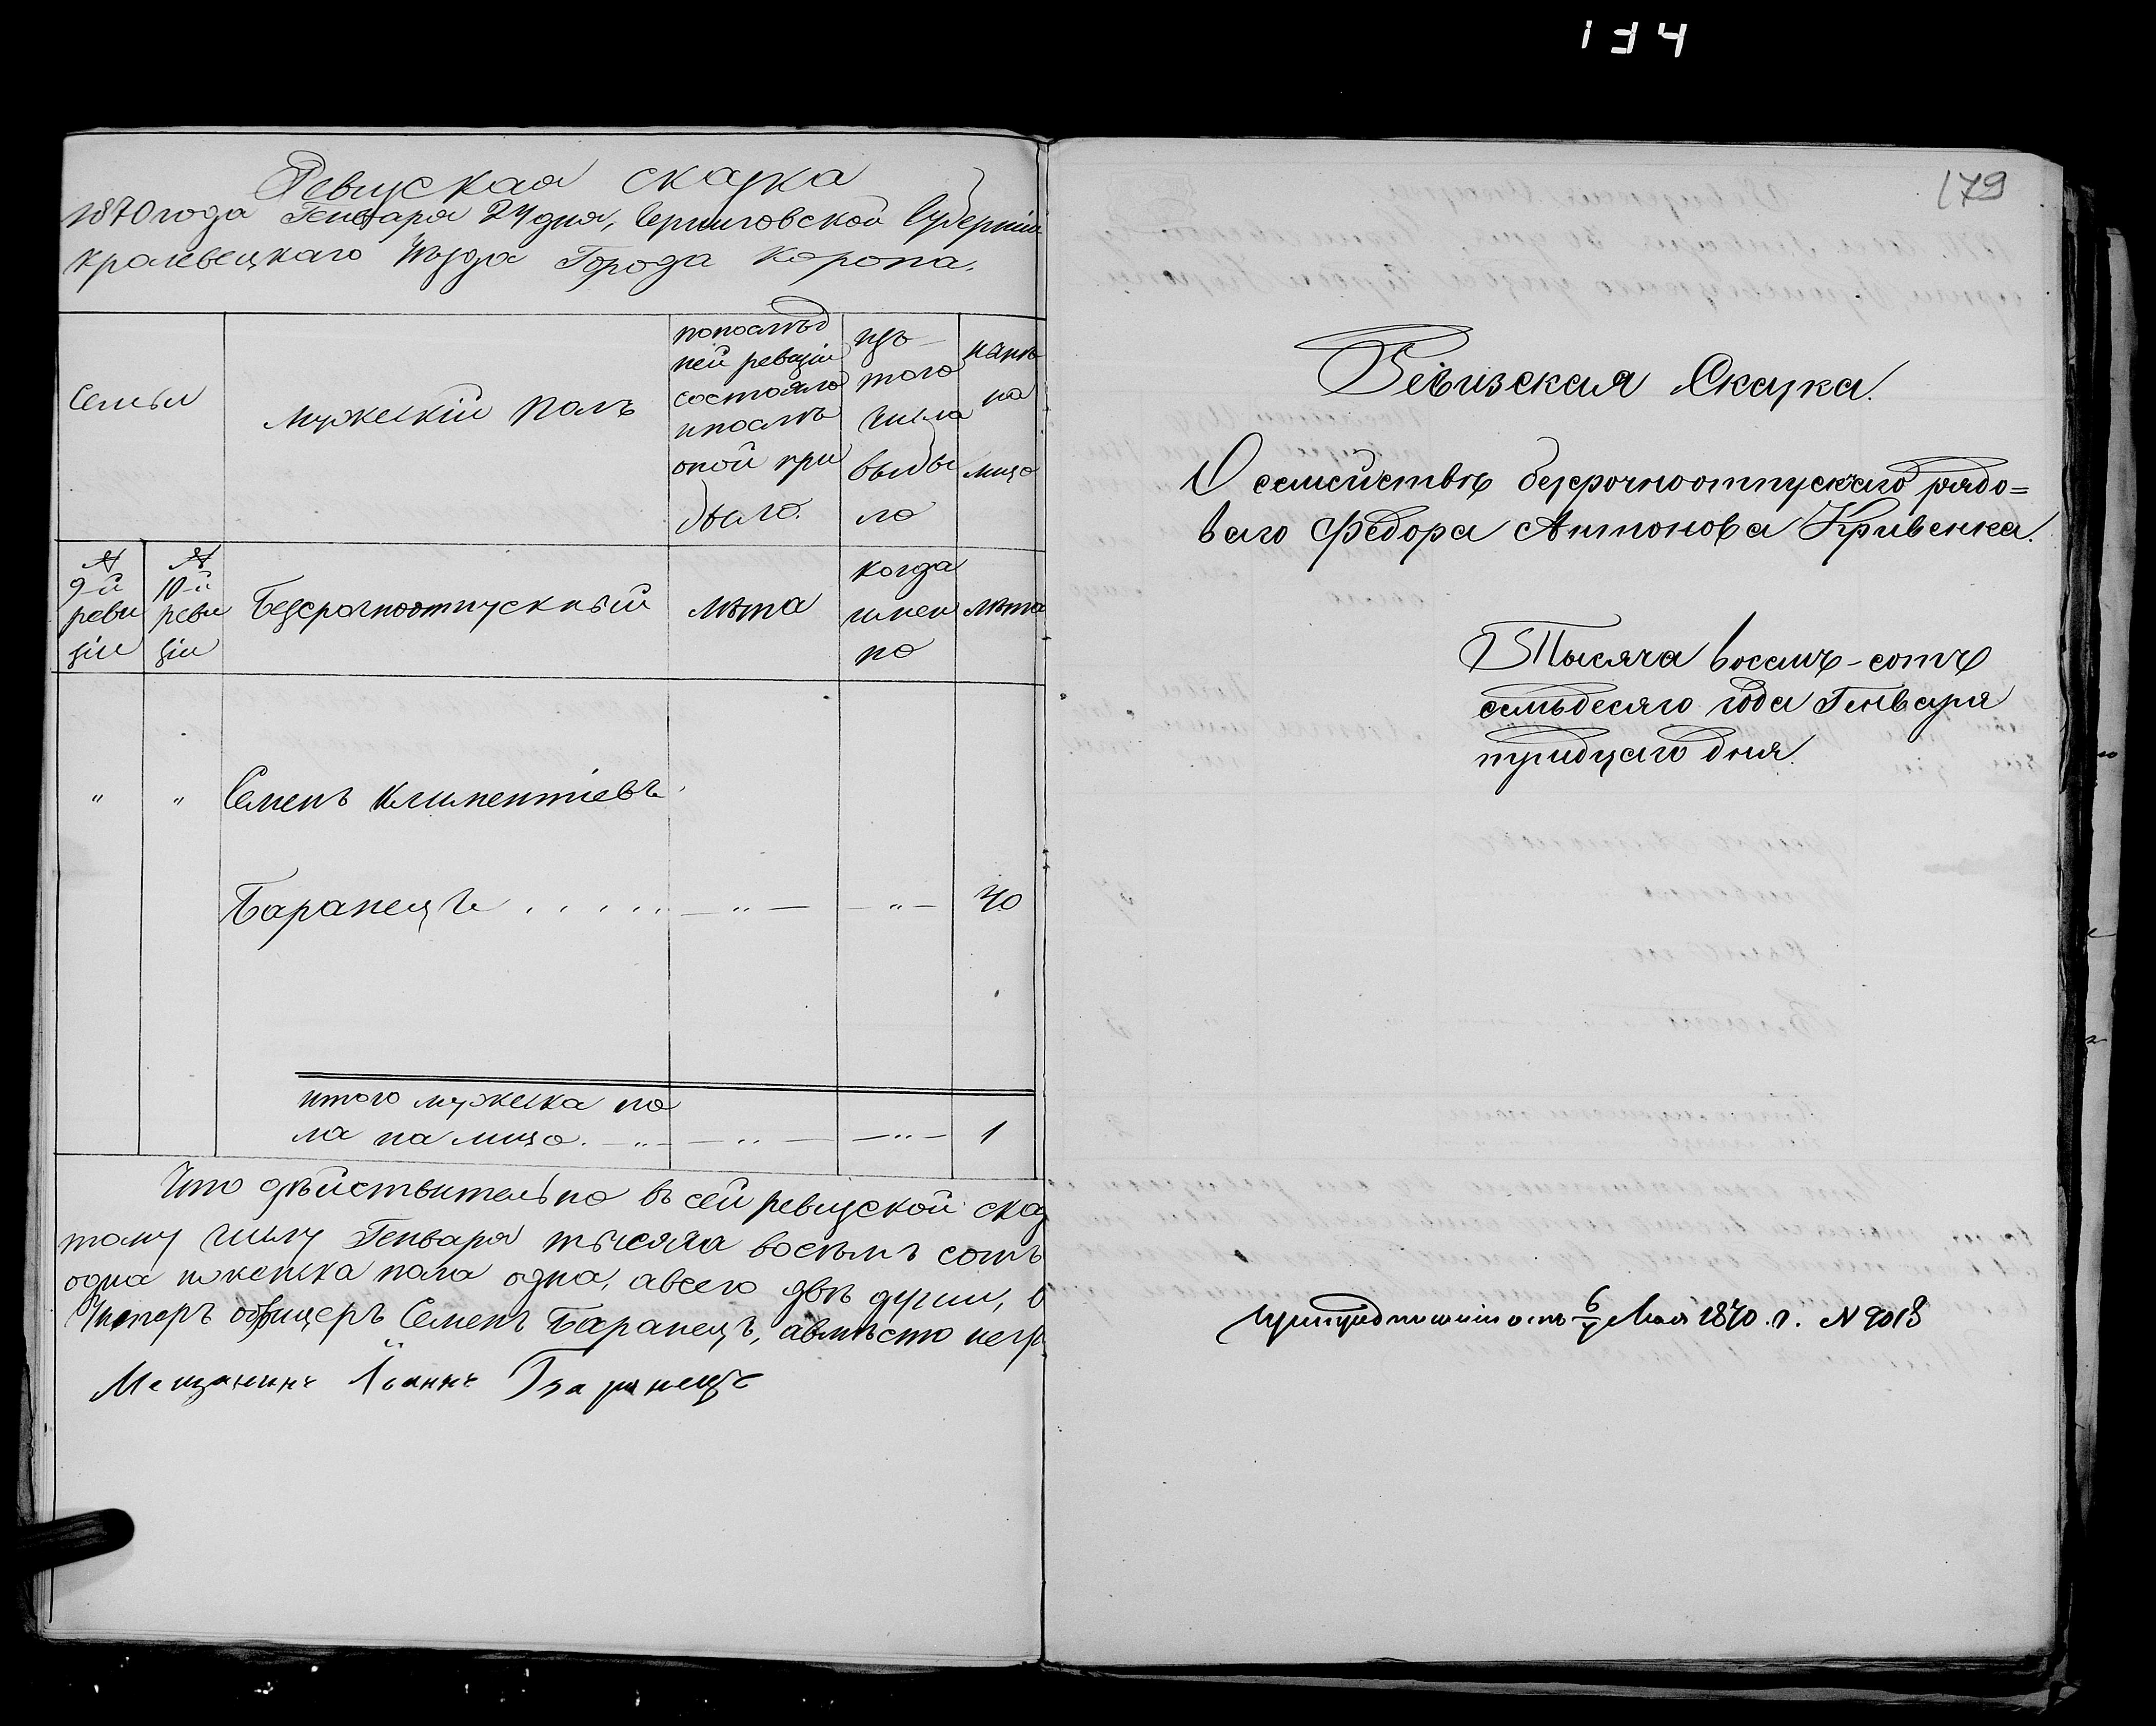 134
Ревизская сказка
1870 года Генваря 24 дня, Черниговской Губерніи
Кролевецкаго Уѣзда Города Коропа.
Семьи
мужескій полъ
попослѣд
ней ревизіи
состояло
ипослѣ
оной при
было.
изъ
того
числа
выбы
ло
нынѣ
на
лицо
№ 9-й реви зіи
№ 10-й реви зіи
Безсрочноотпускный
лѣта
когда
имен
но
лѣта
" " Семенъ Климентіевъ
Баранецъ . . . . . — " — — " — 40
итого мужеска по
ла на лицо. — " — — " — — " — 1
Что дѣйствительно въ сей ревизской сказ
тому числу Генваря тысяча восемъ сотъ
одна и женска пола одна, авсего двѣ души, в
Унтеръ офицеръ Семенъ Баранецъ, авмѣсто негр
Мещанинъ Іванъ Баранецъ
179
Ревизская Сказка.
О семействѣ безсрочноотпускнаго рядо=
ваго Федора Антонова Кривенка.
Тысяча восемъ-сотъ
семьдесяго года Генваря
тридцаго дня.
При предписаніи отъ 6/7 Мая 1870. г. № 9018